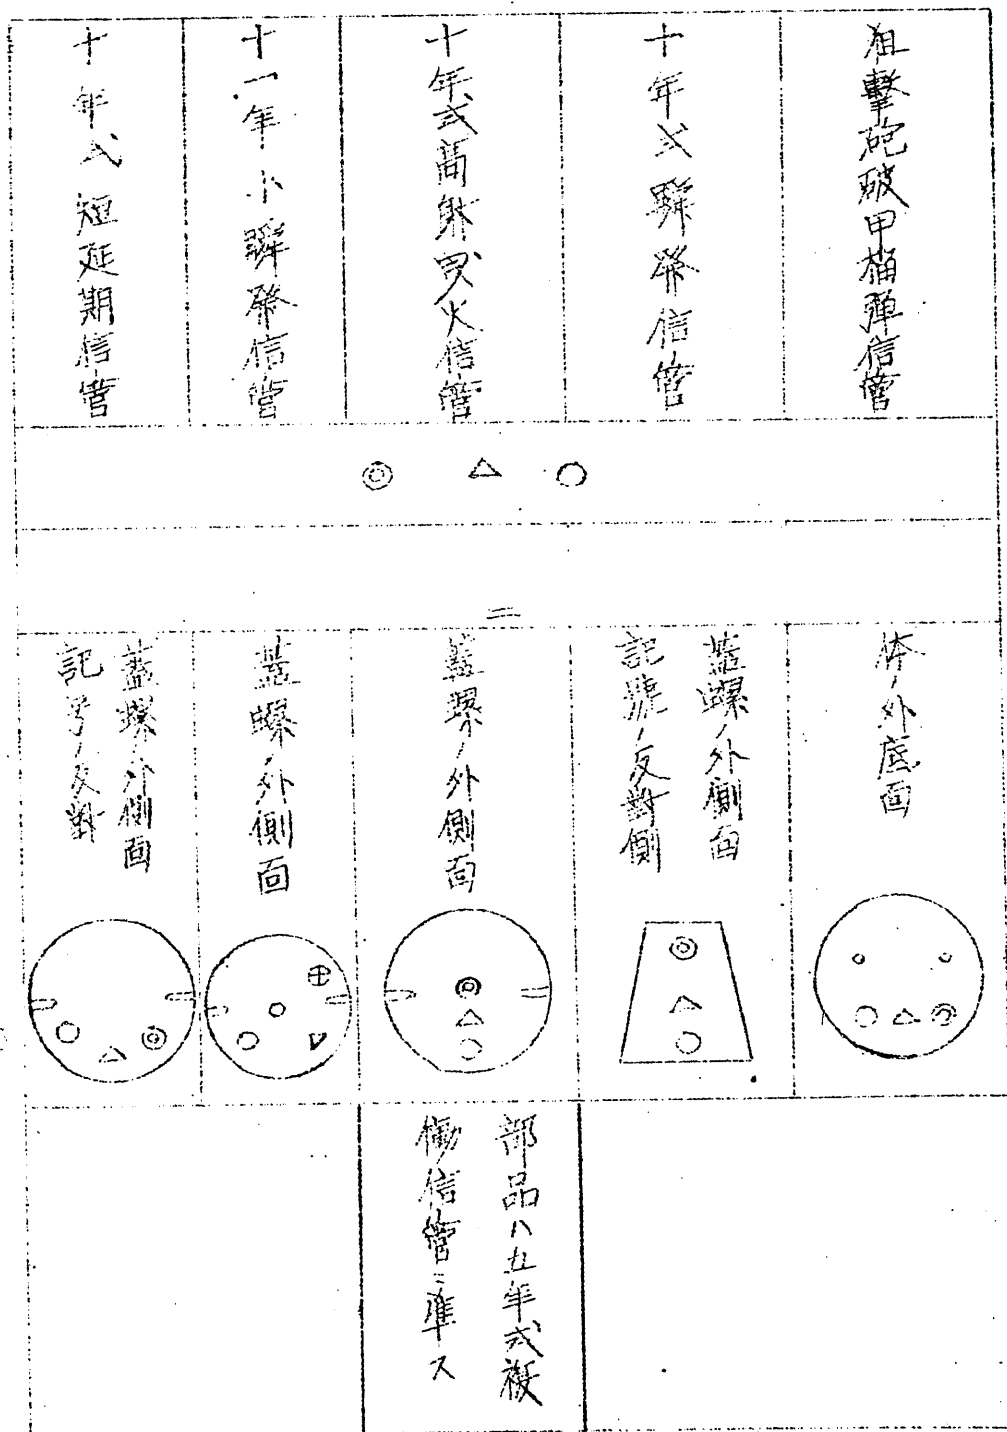 狙撃砲破甲榴弾信管
十年式瞬発信管
十年式高射曳火信管
十一年小瞬発信管
十年式短延期信管
○ △ ◎
二
体ノ外底面
蓋螺ノ外側面
記號ノ反對側
蓋螺ノ外側面
蓋螺ノ外側面
蓋螺ノ外側面
記号ノ反對
部品ハ五年式複
働信管ニ準ス